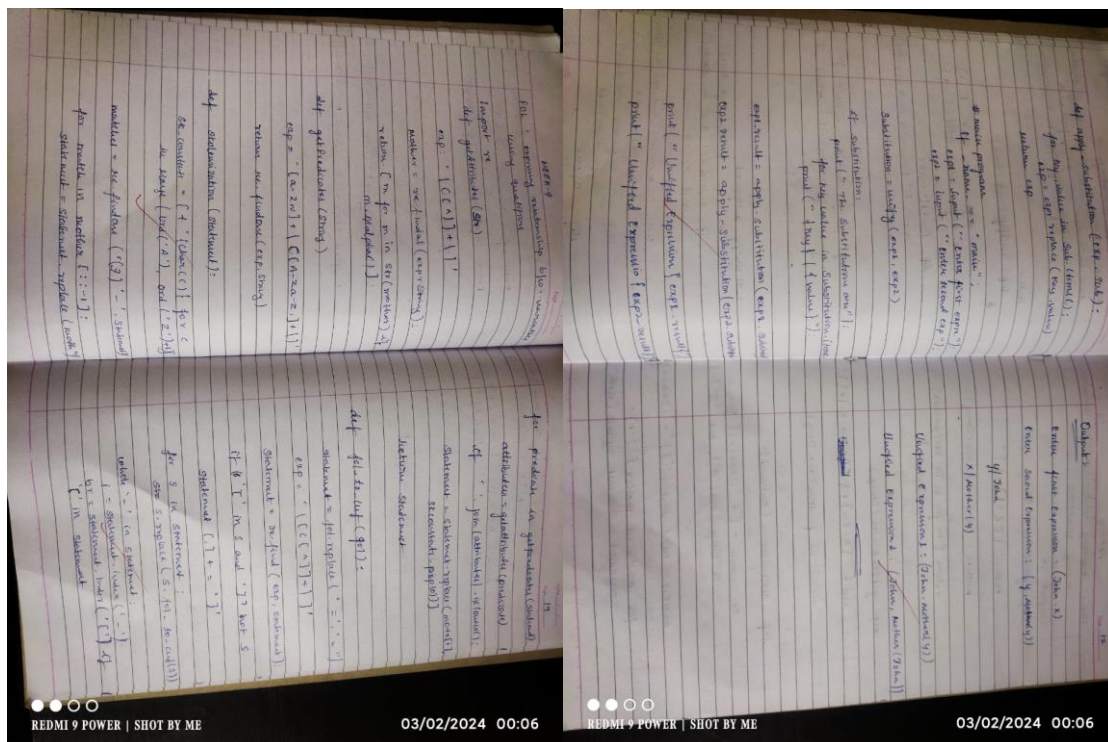 WEEK-9
FOL : expressing relationship b/w variables
using quantifiers
import re
def getAttributes (str)
exp = '\([^)]+\)'
matches = re.findall (exp, string).
return [m for m in str(matches) if
m.isalpha()]
def getPredicates (string)
exp = '[a-z~]+\([A-Za-z,]+\)'
return re.findall (exp, string)
def skolemization (statement):
sk_constants = [f '{chr(c)}' for c
in range (ord('A'), ord('Z')+1)]
matches = re.findall ('[∃].',
for match in matches [::-1]:
statement = statement.replace (match,
19
for predicate in getpredicates (
attributes = getattributes (predicate)
if ' '.join (attributes).islower():
statement = statement.replace (
return statement
def fol_to_cnf (fol):
statement = fol.replace ("
exp = '\[([^]]+)\]'
statement = re.find (exp, statement).
if '[' in s and ']' not s
statement [i] + = ']'
for s in statement :
s.replace (s, fol_to_cnf(s))
while '-' in statement:
i = statement.index ('-')
br = statement.index ('[') if
'[' in statement
def apply_substitution (exp, sub):
for key, value in sub.items():
exp = exp.replace (key, value)
return exp
# main program
if __name__ == "main":
exp1 = input (" enter first expn")
exp2 = input (" enter second exp")
substitution = unify (exp1, exp2)
if substitution:
print (" The substitutions are"):
for key, value in substitution.
print (" {key} / {value} "):
exp1_result = apply_substitution (exp1,
exp2_result = apply_substitution (exp2,
print (" Unified Expression { exp1_result}")
print (" Unified Expressio { exp2_result}")
Output:
Enter first expression: (John, x)
enter second expression: (y, mother(y))
y/ John
x/ Mother(y)
Unified expression1 : (John, mother(y))
Unified expression2 (John, mother(John))
REDMI 9 POWER | SHOT BY ME
03/02/2024 00:06
REDMI 9 POWER | SHOT BY ME
03/02/2024 00:06